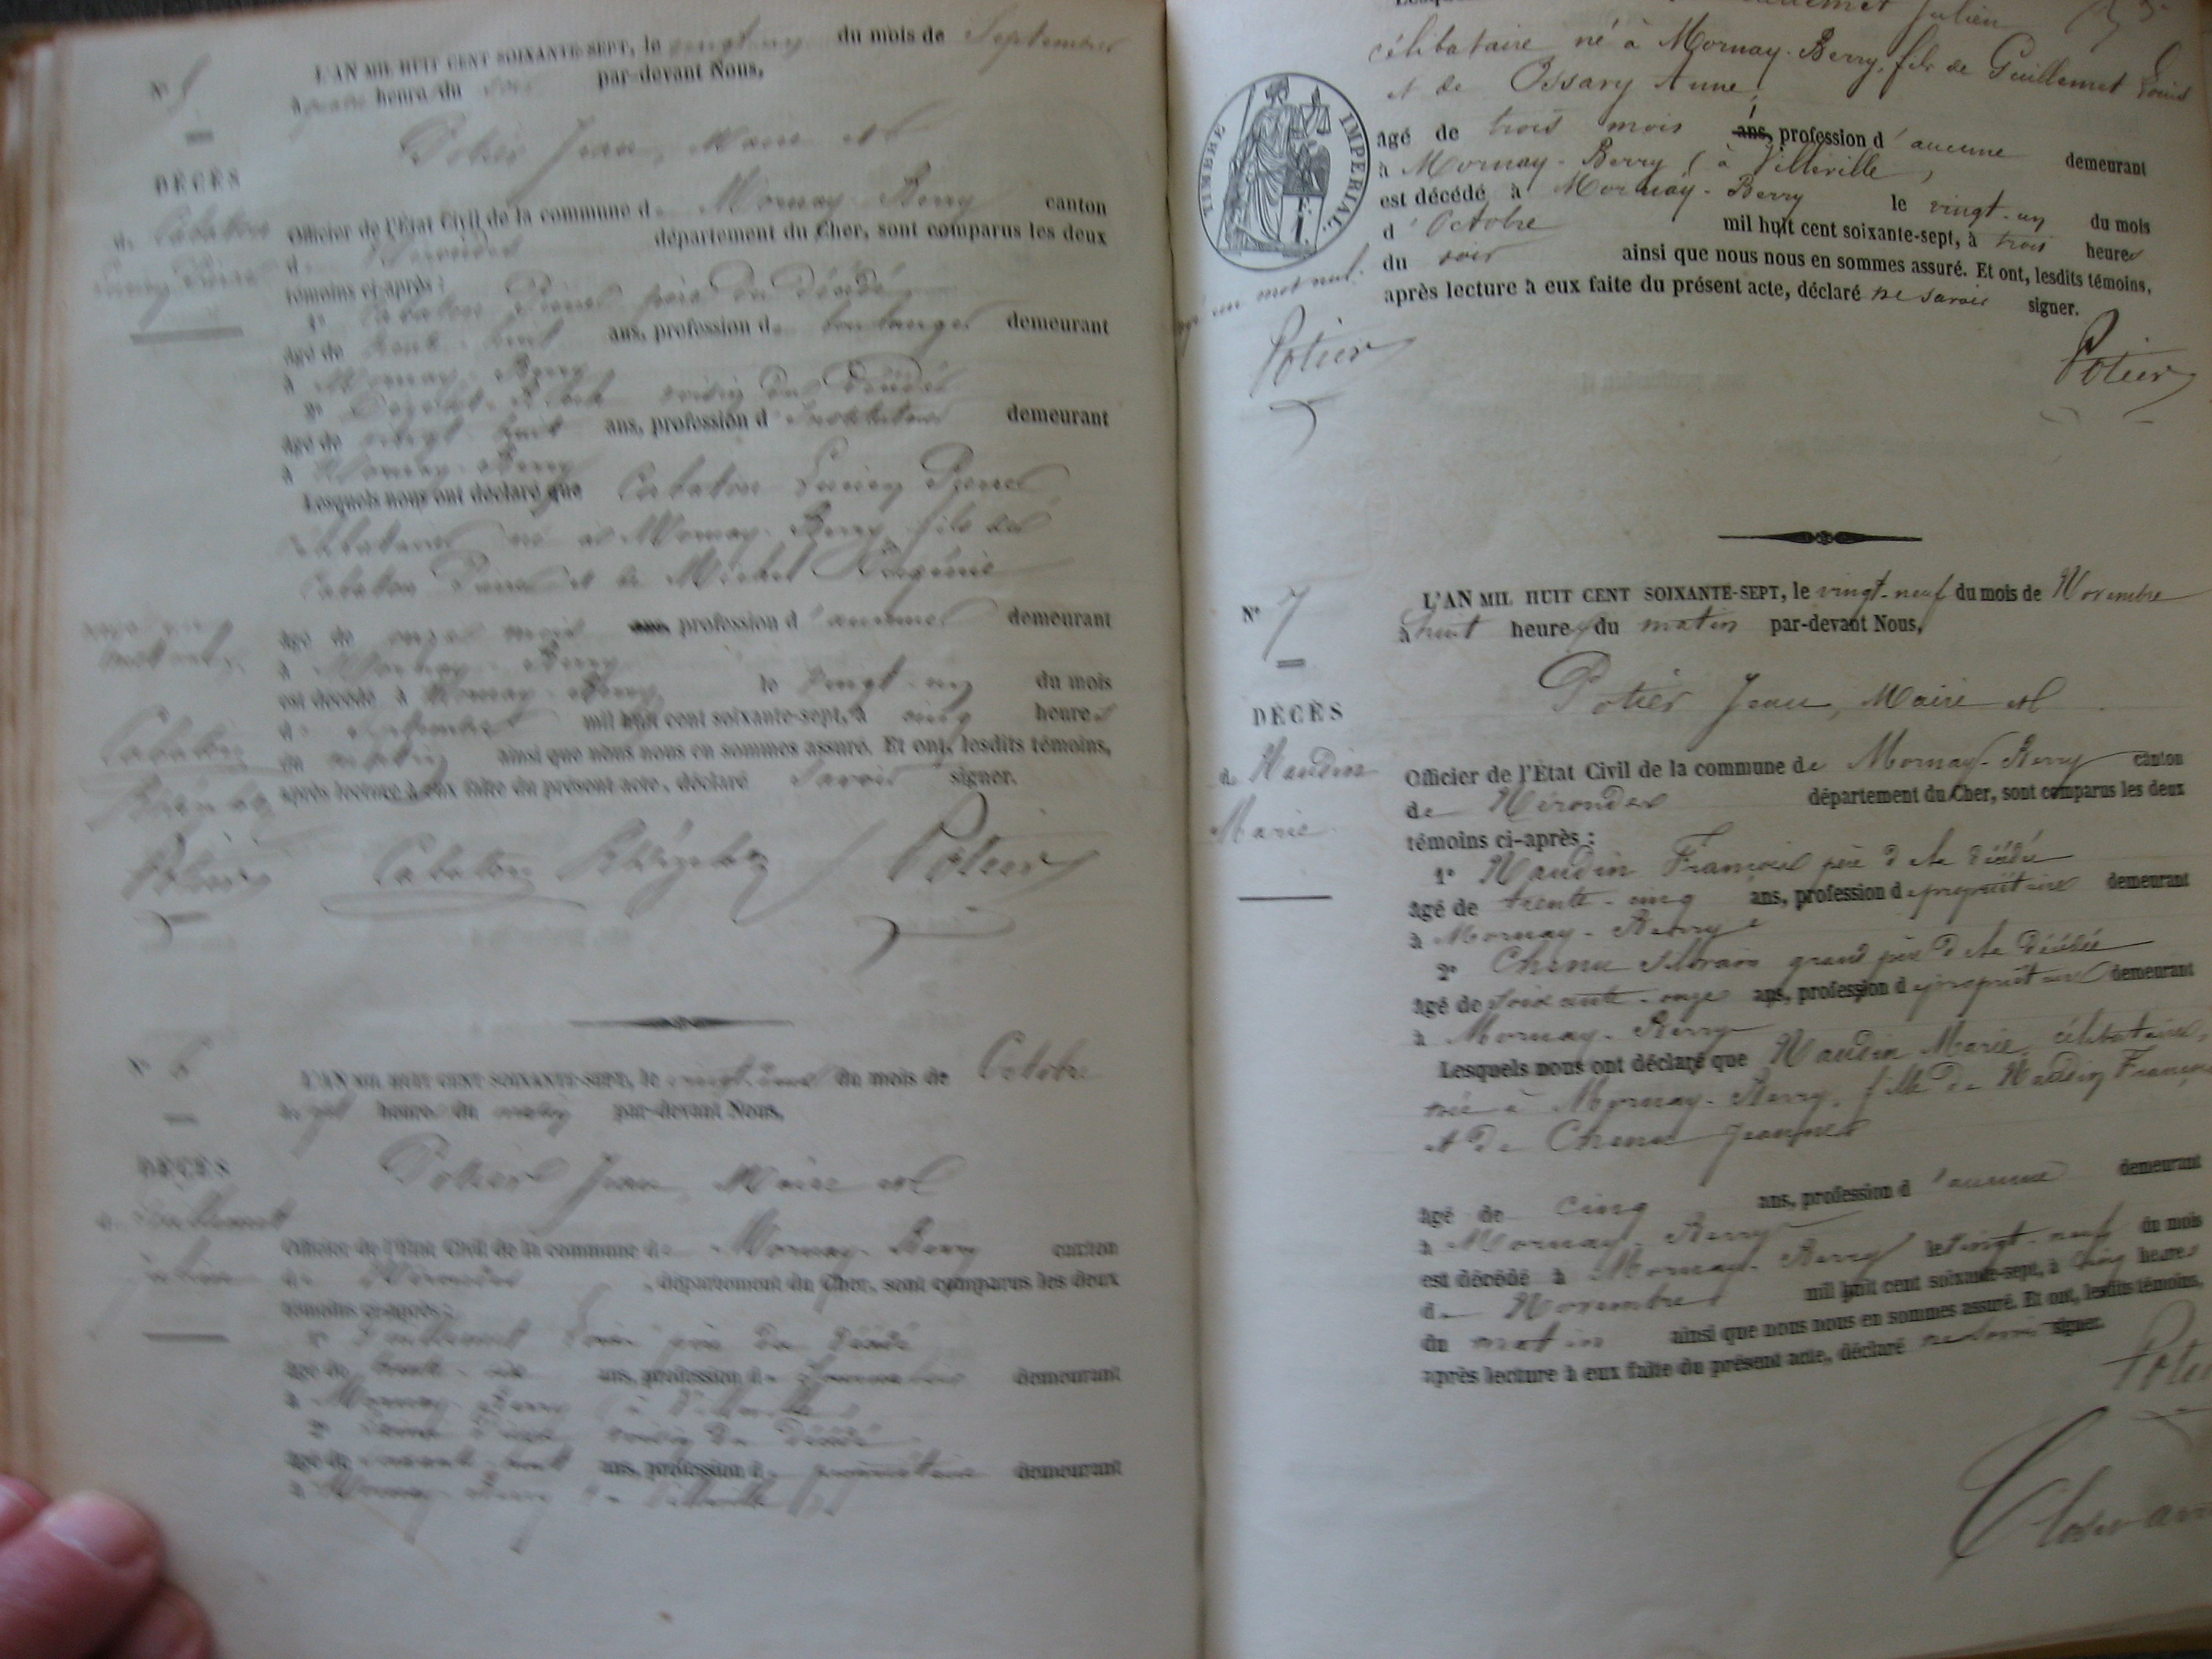 N° 5
L'AN MIL HUIT CENT SOIXANTE-SEPT, le vingt-un du mois de Septembre
à quatre heure du soir par-devant Nous,
Potier Jean, Maire et
DÉCÈS
de Cabaton
Lucien Pierre
Officier de l'État Civil de la commune de Mornay-Berry canton
de Nérondes département du Cher, sont comparus les deux
témoins ci-après :
1° Cabaton Pierre père du décédé
âgé de trente-huit ans, profession de boulanger demeurant
à Mornay-Berry
2° voisin du décédé
âgé de vingt-huit ans, profession d'Instituteur demeurant
à Mornay-Berry
Lesquels nous ont déclaré que Cabaton Lucien Pierre
célibataire né à Mornay-Berry, fils de
Cabaton Pierre et de Michel Eugénie
âgé de onze mois ans, profession d'aucune demeurant
à Mornay-Berry
est décédé à Mornay-Berry le vingt-un du mois
de Septembre mil huit cent soixante-sept, à cinq heures
du matin ainsi que nous nous en sommes assuré. Et ont, lesdits témoins,
après lecture à eux faite du présent acte, déclaré savoir signer.
Cabaton
Potier
Cabaton Potier
N° 6
L'AN MIL HUIT CENT SOIXANTE-SEPT, le vingt-deux du mois de Octobre
à sept heure du matin par-devant Nous,
Potier Jean, Maire et
DÉCÈS
de Guillemet
Julien
Officier de l'État Civil de la commune de Mornay-Berry canton
de Nérondes département du Cher, sont comparus les deux
témoins ci-après :
1° Guillemet Louis père du décédé
âgé de ans, profession de Journalier demeurant
à Mornay-Berry (à Villeville)
2° voisin du décédé
âgé de ans, profession de propriétaire demeurant
à Mornay-Berry (à Villeville)
Guillemet Julien
célibataire né à Mornay-Berry, fils de Guillemet Louis
et de Ossary Anne,
âgé de trois mois ans, profession d'aucune demeurant
à Mornay-Berry (à Villeville,
est décédé à Mornay-Berry le vingt-un du mois
d'Octobre mil huit cent soixante-sept, à trois heures
du soir ainsi que nous nous en sommes assuré. Et ont, lesdits témoins,
après lecture à eux faite du présent acte, déclaré ne savoir signer.
TIMBRE IMPÉRIAL.
un mot nul.
Potier
Potier
N° 7
L'AN MIL HUIT CENT SOIXANTE-SEPT, le vingt-neuf du mois de Novembre
à huit heure du matin par-devant Nous,
Potier Jean, Maire et
DÉCÈS
de Naudin
Marie
Officier de l'État Civil de la commune de Mornay-Berry canton
de Nérondes département du Cher, sont comparus les deux
témoins ci-après :
1° Naudin François père de la décédée
âgé de trente-cinq ans, profession de propriétaire demeurant
à Mornay-Berry
2° Chenu Silvain grand père de la décédée
âgé de soixante-onze ans, profession de propriétaire demeurant
à Mornay-Berry
Lesquels nous ont déclaré que Naudin Marie, célibataire,
née à Mornay-Berry, fille de Naudin François
et de Chenu Jeanne
âgé de cinq ans, profession d'aucune demeurant
à Mornay-Berry
est décédé à Mornay-Berry le vingt-neuf du mois
de Novembre mil huit cent soixante-sept, à cinq heures
du matin ainsi que nous nous en sommes assuré. Et ont, lesdits témoins,
après lecture à eux faite du présent acte, déclaré ne savoir signer.